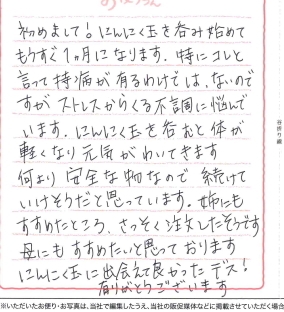 初めまして！にんにく玉を呑み始めて
もうすぐ1ヵ月になります。特にコレと
言って持病が有るわけでは、ないので
すがストレスからくる不調に悩んで
います。にんにく玉を呑むと体が
軽くなり元気がわいてきます
何より安全な物なので続けて
いけそうだと思っています。姉にも
すすめたところ、さっそく注文したそうです
母にもすすめたいと思っております
にんにく玉に出会えて良かったデス！
有りがとうございます
※いただいたお便り・お写真は、当社で編集したうえ、当社の販促媒体などに掲載させていただく場合